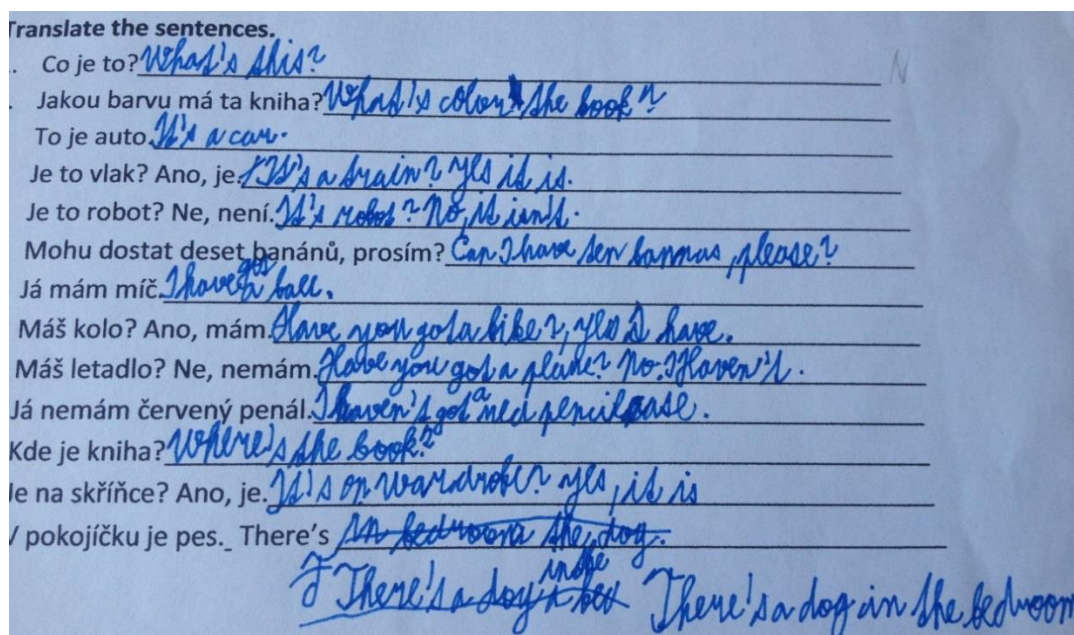 Translate the sentences.
. Co je to? What's this? N
. Jakou barvu má ta kniha? What's colour the book?
To je auto. It's a car.
Je to vlak? Ano, je. It's a train? yes it is.
Je to robot? Ne, není. It's robot? No, it isn't.
Mohu dostat deset banánů, prosím? Can I have ten bannas, please?
Já mám míč. I have got a ball.
Máš kolo? Ano, mám. Have you got a bike?, yes I have.
Máš letadlo? Ne, nemám. Have you got a plane? No. I Haven't.
Já nemám červený penál. I haven't got a red pencilcase.
Kde je kniha? Where's the book?
Je na skříňce? Ano, je. It's on wardrobe? yes, it is
V pokojíčku je pes._ There's in bedroom the dog.
There's a dog in the bed There's a dog in the bedroom